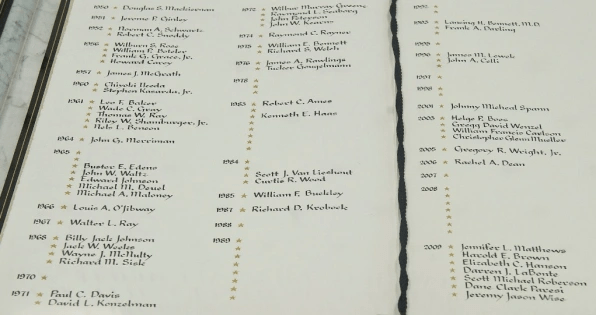 1950 ★ Douglas S. Mackiernan
1951 ★ Jerome P. Ginley
1952 ★ Norman A. Schwartz
★ Robert C. Snoddy
1956 ★ William P. Boteler
★ Frank G. Grace, Jr.
★ Howard Carey
1957 ★ James J. McGrath
1960 ★ Chiyoki Ikeda
★ Stephen Kasarda, Jr.
1961 ★ Leo F. Baker
★ Wade C. Gray
★ Thomas W. Ray
★ Riley W. Shamburger, Jr.
★ Nels L. Benson
1964 ★ John G. Merriman
1965 ★
★
★ Buster E. Edens
★ John W. Waltz
★ Edward Johnson
★ Michael M. Deuel
★ Michael A. Maloney
1966 ★ Louis A. O'Jibway
1967 ★ Walter L. Ray
1968 ★ Billy Jack Johnson
★ Jack W. Weeks
★ Wayne J. McNulty
★ Richard M. Sisk
1970 ★
1971 ★ Paul C. Davis
★ David L. Konzelman
1972 ★ Wilbur Murray Greene
★ Raymond L. Seaborg
★ John Peterson
★ John W. Kearns
1974 ★ Raymond C. Rayner
1975 ★ William E. Bennett
★ Richard S. Welch
1976 ★ James A. Rawlings
★ Tucker Gougelmann
1978 ★
★
1983 ★ Robert C. Ames
★
★ Kenneth E. Haas
★
★
★
1984 ★
★ Scott J. Van Lieshout
★ Curtis R. Wood
1985 ★ William F. Buckley
1987 ★ Richard D. Krobock
1988 ★
1989 ★
★
★
★
★
★
1992 ★
1993 ★ Lansing H. Bennett, M.D.
★ Frank A. Darling
1995 ★
1996 ★ James M. Lewek
★ John A. Celli
1997 ★
1998 ★
★
2001 ★ Johnny Micheal Spann
2003 ★ Helge P. Boes
★ Gregg David Wenzel
★ William Francis Carlson
★ Christopher Glenn Mueller
2005 ★ Gregory R. Wright, Jr.
2006 ★ Rachel A. Dean
2007 ★
2008 ★
★
★
★
★
★
2009 ★ Jennifer L. Matthews
★ Harold E. Brown
★ Elizabeth C. Hanson
★ Darren J. LaBonte
★ Scott Michael Roberson
★ Dane Clark Paresi
★ Jeremy Jason Wise